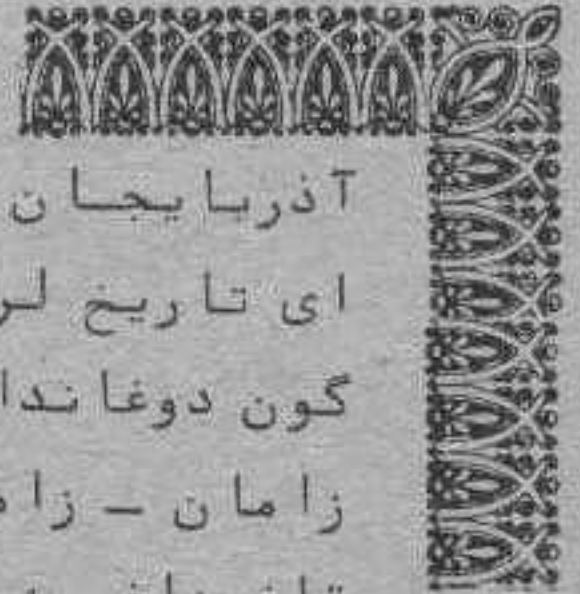 آذربایجان
ای تاریخ لر
گون دوغاندا
زامان –